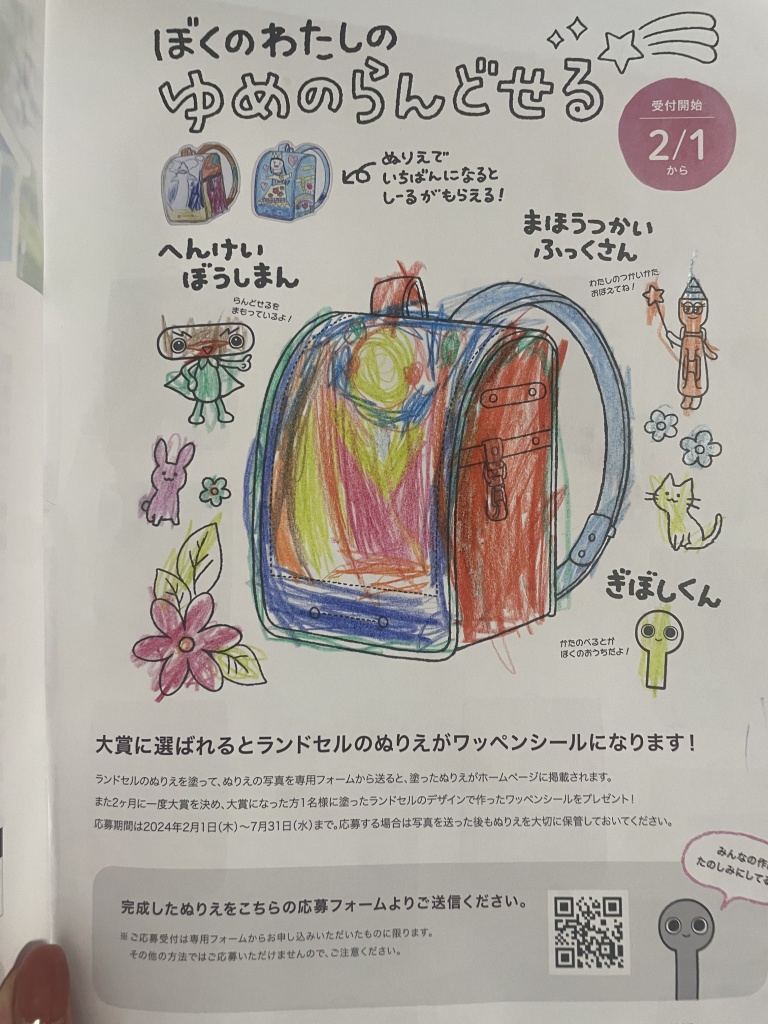 ぼくのわたしの
ゆめのらんどせる
受付開始
2/1
から
ぬりえで
いちばんになると
しーるがもらえる!
へんけい
ぼうしまん
らんどせるを
まもっているよ!
まほうつかい
ふっくさん
わたしのつかいかた
おぼえてね!
ぎぼしくん
かたのべるとが
ぼくのおうちだよ!
大賞に選ばれるとランドセルのぬりえがワッペンシールになります!
ランドセルのぬりえを塗って、ぬりえの写真を専用フォームから送ると、塗ったぬりえがホームページに掲載されます。
また2ヶ月に一度大賞を決め、大賞になった方1名様に塗ったランドセルのデザインで作ったワッペンシールをプレゼント!
応募期間は2024年2月1日(木)〜7月31日(水)まで。応募する場合は写真を送った後もぬりえを大切に保管しておいてください。
みんなの作
たのしみにしてる
完成したぬりえをこちらの応募フォームよりご送信ください。
※ご応募受付は専用フォームからお申し込みいただいたものに限ります。
その他の方法ではご応募いただけませんので、ご注意ください。